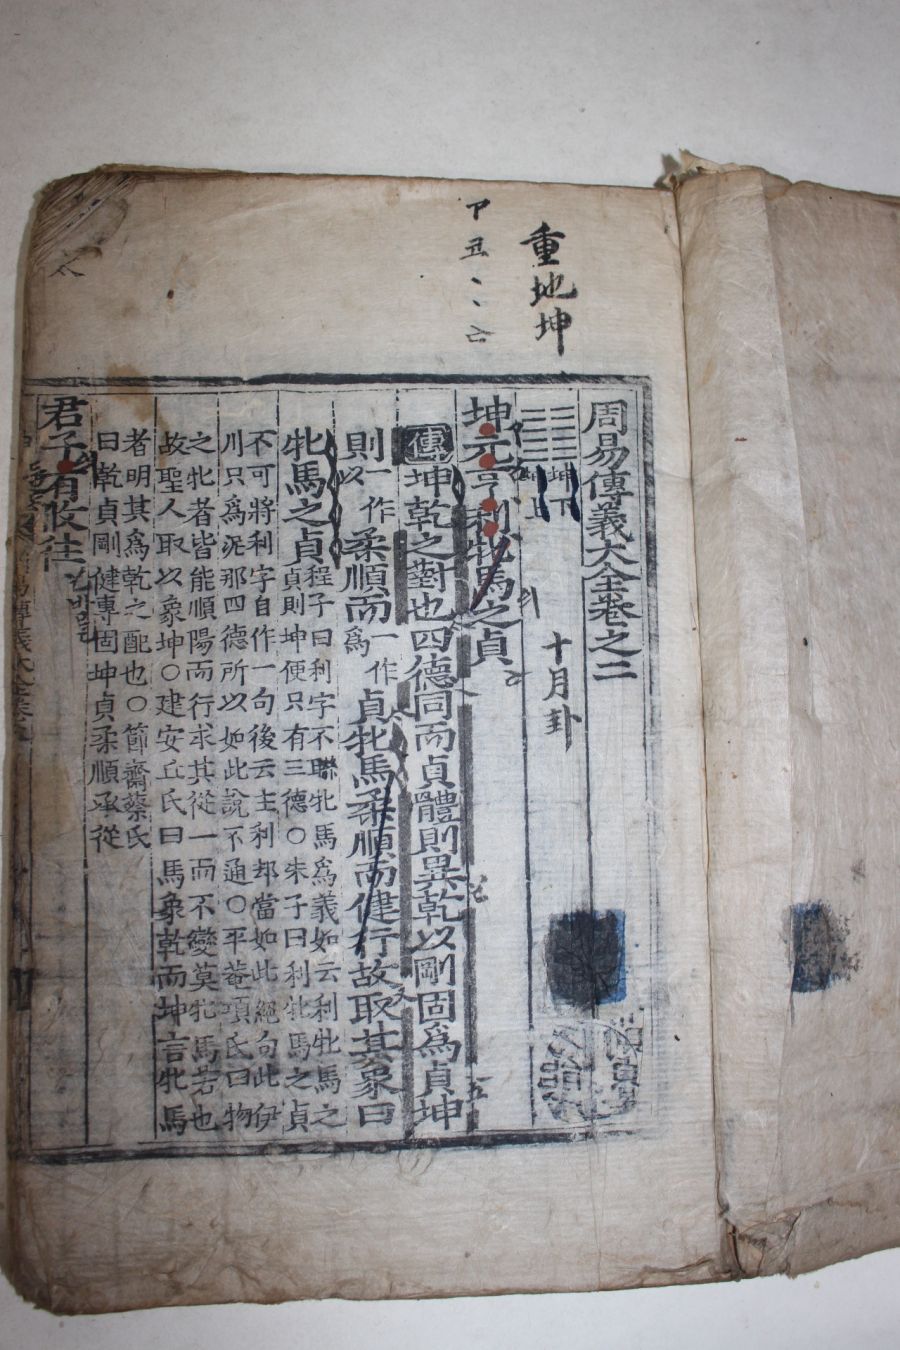 重地坤
甲丑
周易傳義大全卷之二
坤下
坤上
十月卦
坤元亨利牝馬之貞
傳坤乾之對也四德同而貞體則異乾以剛固爲貞坤
則一作以柔順而一作爲貞牝馬柔順而健行故取其象曰
牝馬之貞程子曰利字不聯牝馬爲義如云利牝馬之
貞則坤便只有三德○朱子曰利牝馬之貞
不可將利字自作一句後云主利却當如此絕句此伊
川只爲泥那四德所以如此說不通○平菴項氏曰物
之牝者皆能順陽而行求其從一而不變莫牝馬若也
故聖人取以象坤○建安丘氏曰馬象乾而坤言牝馬
者明其爲乾之配也○節齋蔡氏
曰乾貞剛健專固坤貞柔順承從
君子有攸往